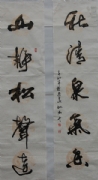 秋清泉氣香
山靜松聲遠